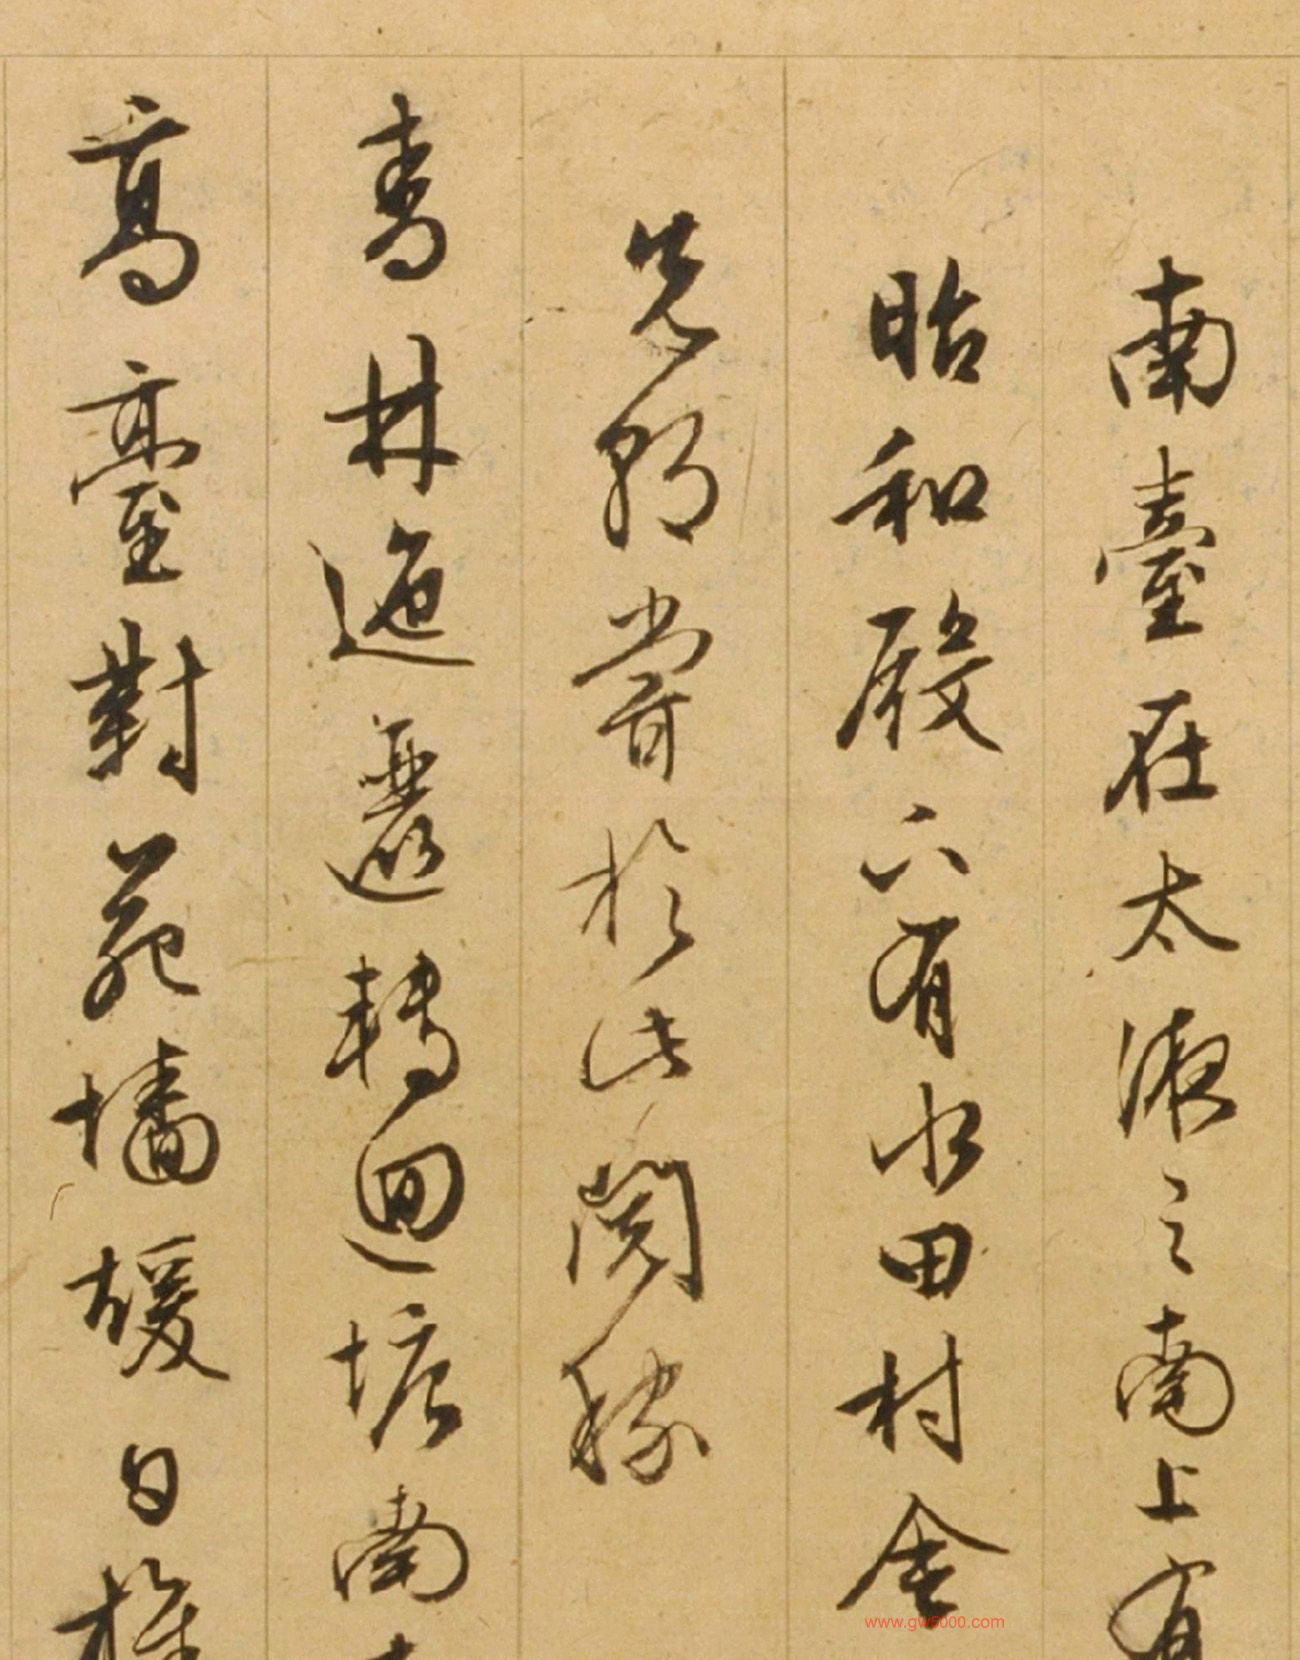 南臺在太液之南上有
昭和殿下有水田村舍
先朝嘗於此閱稼
青林迤邐轉迴塘南
高臺對苑墻暖日
www.gw5000.com